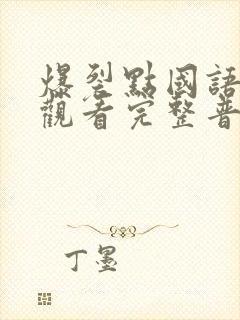 爆裂點國語
觀看完整普
丁墨